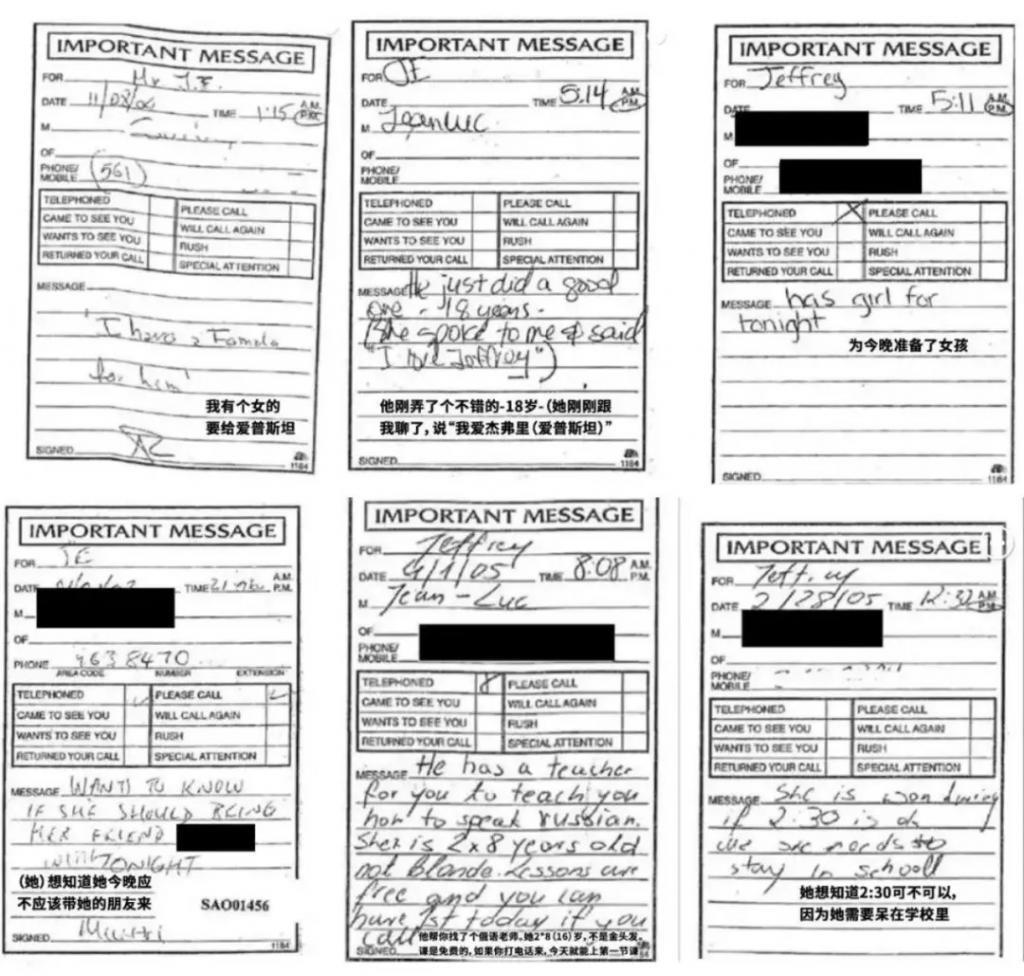 IMPORTANT MESSAGE
FOR Mr J.E.
DATE TIME 1:15 A.M.
P.M.
M
OF
PHONE/
MOBILE (561)
TELEPHONED PLEASE CALL
CAME TO SEE YOU WILL CALL AGAIN
WANTS TO SEE YOU RUSH
RETURNED YOUR CALL SPECIAL ATTENTION
MESSAGE
"I have a Female
for him"
我有个女的
要给爱普斯坦
SIGNED
1184
IMPORTANT MESSAGE
FOR JE
DATE TIME 5:14 A.M.
P.M.
M Jean Luc
OF
PHONE/
MOBILE
TELEPHONED PLEASE CALL
CAME TO SEE YOU WILL CALL AGAIN
WANTS TO SEE YOU RUSH
RETURNED YOUR CALL SPECIAL ATTENTION
MESSAGE He just did a good
one - 18 years -
(She spoke to me & said
"I love Jeffrey")
他刚弄了个不错的-18岁-(她刚刚跟
我聊了,说“我爱杰弗里(爱普斯坦)”
SIGNED
1184
IMPORTANT MESSAGE
FOR Jeffrey
DATE TIME 5:11 A.M.
P.M.
M
OF
PHONE/
MOBILE
TELEPHONED X PLEASE CALL
CAME TO SEE YOU WILL CALL AGAIN
WANTS TO SEE YOU RUSH
RETURNED YOUR CALL SPECIAL ATTENTION
MESSAGE has girl for
tonight
为今晚准备了女孩
SIGNED
1184
IMPORTANT MESSAGE
FOR JE
DATE TIME A.M.
P.M.
M
OF
PHONE
AREA CODE NUMBER EXTENSION
TELEPHONED PLEASE CALL
CAME TO SEE YOU WILL CALL AGAIN
WANTS TO SEE YOU RUSH
RETURNED YOUR CALL SPECIAL ATTENTION
MESSAGE WANTS TO KNOW
IF SHE SHOULD BRING
HER FRIEND
WITH TONIGHT
(她)想知道她今晚应
不应该带她的朋友来
SAO01456
SIGNED
1184
IMPORTANT MESSAGE
FOR Jeffrey
DATE 4/1/05 TIME 8:08 A.M.
P.M.
M Jean-Luc
OF
PHONE/
MOBILE
TELEPHONED PLEASE CALL
CAME TO SEE YOU WILL CALL AGAIN
WANTS TO SEE YOU RUSH
RETURNED YOUR CALL SPECIAL ATTENTION
MESSAGE He has a teacher
for you to teach you
how to speak russian.
She is 2x8 years old
not blonde. Lessons are
free and you can
have 1st today if you
call
他帮你找了个俄语老师,她2*8(16)岁,不是金头发。
课是免费的,如果你打电话来,今天就能上第一节课
SIGNED
IMPORTANT MESSAGE
FOR Jeffrey
DATE 2/28/05 TIME 12:32 A.M.
P.M.
M
OF
PHONE/
MOBILE
TELEPHONED PLEASE CALL
CAME TO SEE YOU WILL CALL AGAIN
WANTS TO SEE YOU RUSH
RETURNED YOUR CALL SPECIAL ATTENTION
MESSAGE She is wondering
if 2:30 is ok
she needs to
stay in school
她想知道2:30可不可以,
因为她需要呆在学校里
SIGNED